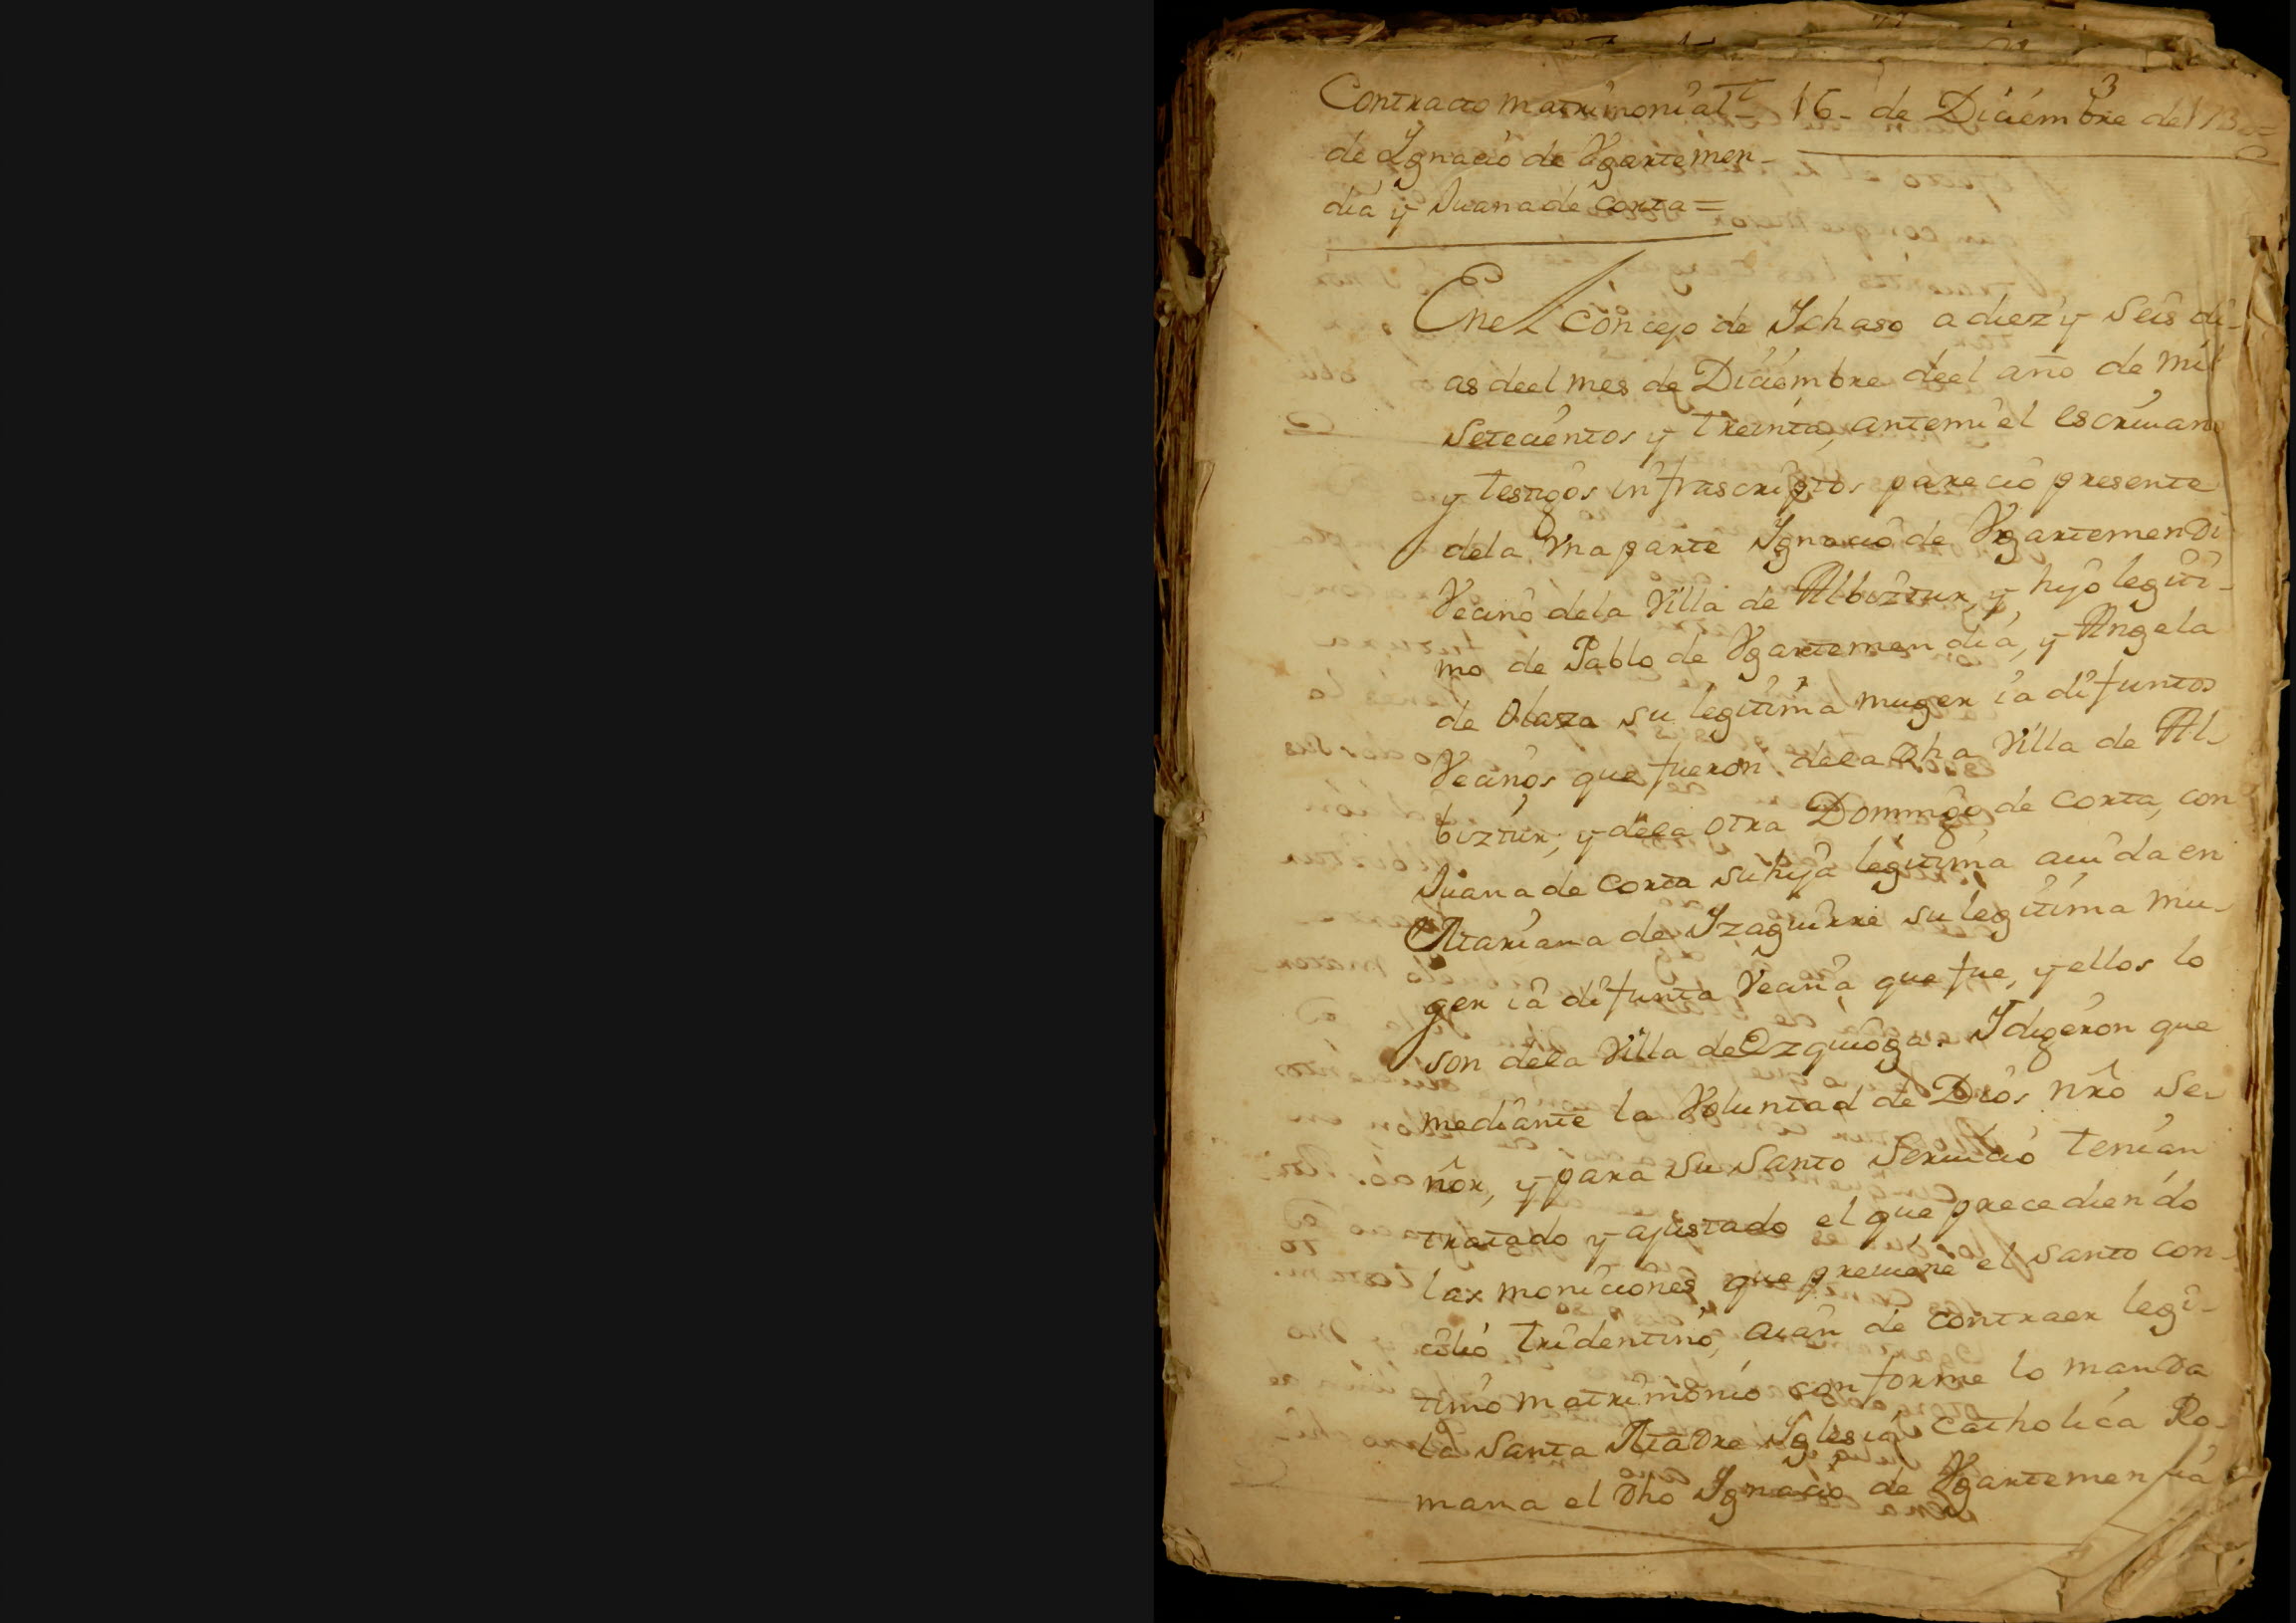 Contracto matrimonial 16 de Diciembre de 1730
de Ygnacio de Vgartemen-
dia y Juana de Corta=
En el concejo de Ichaso a diez y seis di-
as deel mes de Diciembre deel año de mil
setecientos y treinta, antemi el escriuano
y testigos infrascriptos parecio presente
dela Vna parte Ygnacio de Vgartemendi
Vecino dela Villa de Albiztur, y hijo legiti-
mo de Pablo de Vgartemendia, y Angela
de Olaza su legitima muger ia difuntos
Vecinos que fueron dela dha Villa de Al-
biztur; y dela otra Domingo de Corta, con
Juana de Corta su hija legitima auida en
Mariana de Izaguirre su legitima mu-
ger ia difunta Vecina que fue, y ellos lo
son dela Villa de Ezquioga. I digeron que
mediante la Voluntad de Dios nro Se-
ñor, y para su Santo Seruicio tenian
tratado y ajustado el que precediendo
lax moniciones que preuiene el Santo con-
cilio tridentino, aian de contraer legi-
timo matrimonio conforme lo manda
la Santa Madre Yglesia Catholica Ro-
mana el dho Ygnacio de Vgartemendia